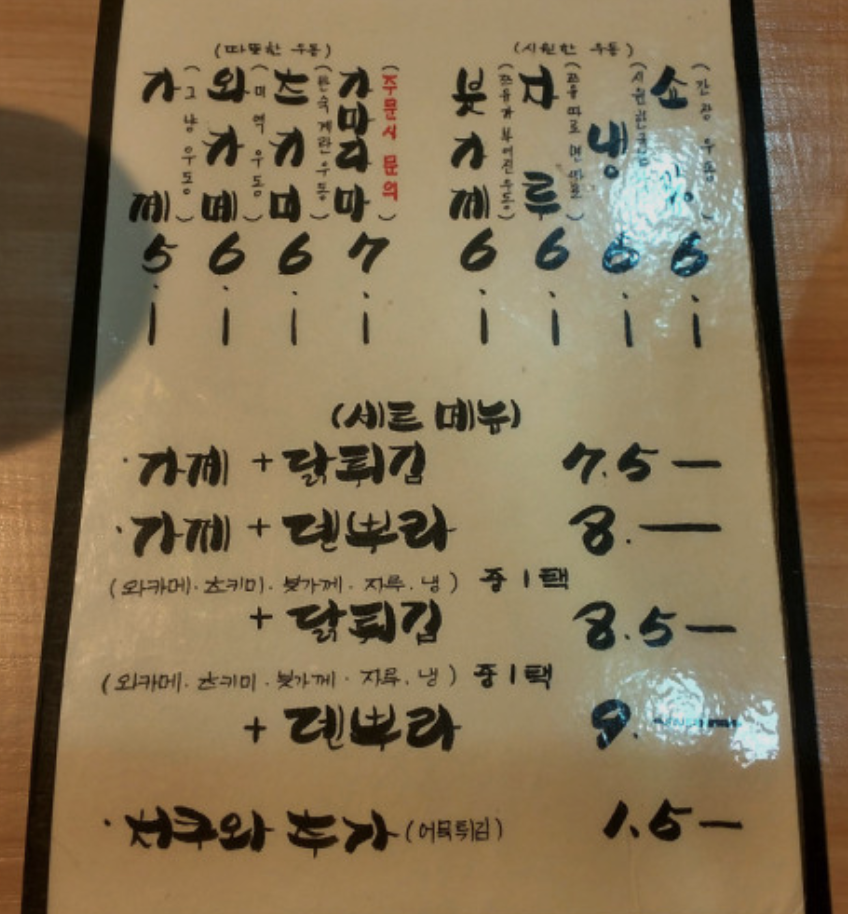 (따뜻한 우동)
가께 (그냥 우동) 5.ㅡ
와카메 (미역 우동) 6.ㅡ
츠키미 (반숙계란우동) 6.ㅡ
가마타마 (주문시 문의) 7.ㅡ
(시원한 우동)
붓가께 (쯔유가 부어진 우동) 6.ㅡ
자루 (쯔유 따로 면 따로) 6.ㅡ
냉 6.ㅡ
(간장 우동) 6.ㅡ
(세트 메뉴)
· 가께 + 닭튀김 7.5 ㅡ
· 가께 + 덴뿌라 8. ㅡ
(와카메 · 츠키미 · 붓가께 · 자루 · 냉) 중 1택
+ 닭튀김 8.5 ㅡ
(와카메 · 츠키미 · 붓가께 · 자루 · 냉) 중 1택
+ 덴뿌라 9. ㅡ
· 치쿠와 추가 (어묵튀김) 1.5 ㅡ